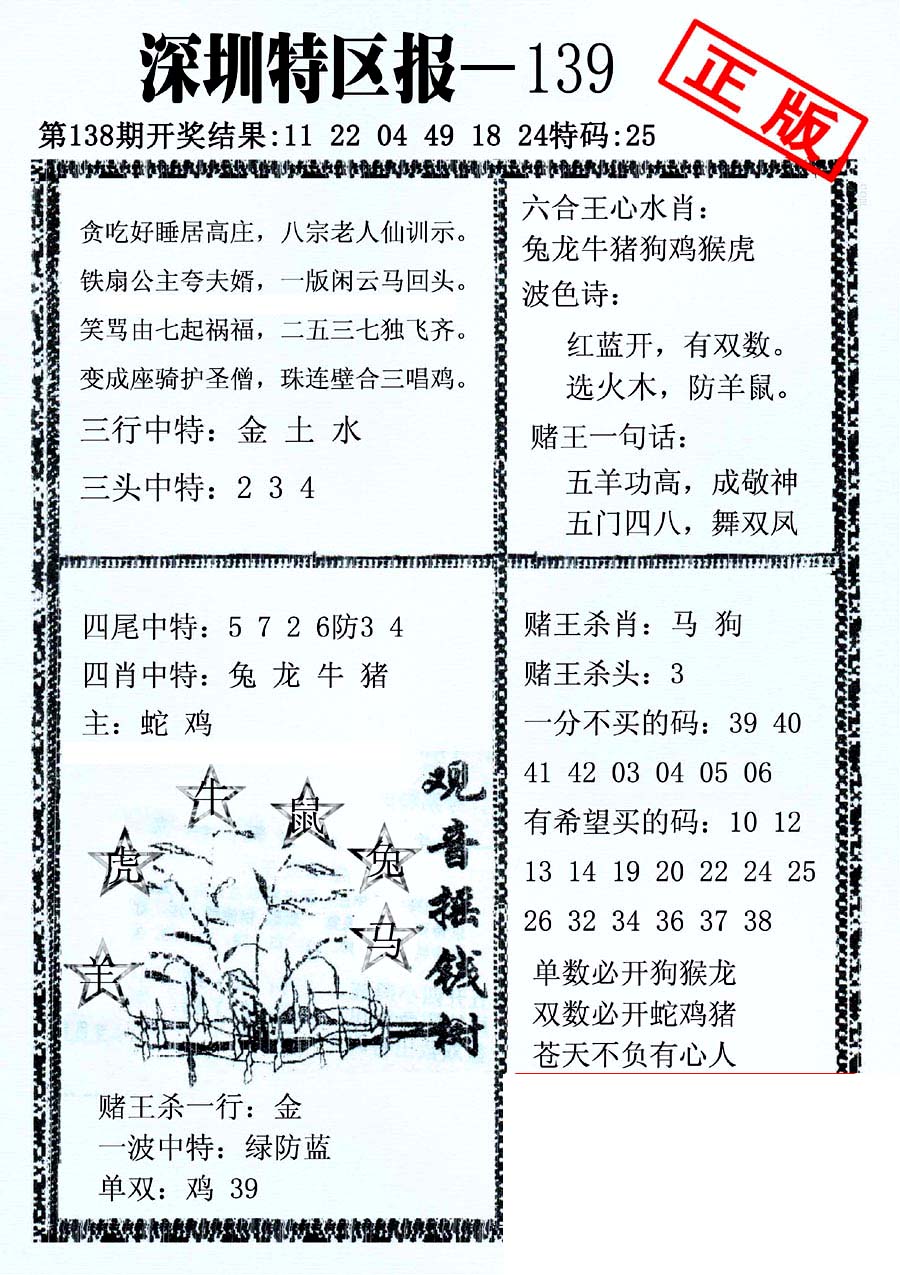 深圳特区报—139
正版
第138期开奖结果:11 22 04 49 18 24特码:25
贪吃好睡居高庄，八宗老人仙训示。
铁扇公主夸夫婿，一版闲云马回头。
笑骂由七起祸福，二五三七独飞齐。
变成座骑护圣僧，珠连壁合三唱鸡。
三行中特：金 土 水
三头中特：2 3 4
六合王心水肖：
兔龙牛猪狗鸡猴虎
波色诗：
红蓝开，有双数。
选火木，防羊鼠。
赌王一句话：
五羊功高，成敬神
五门四八，舞双凤
四尾中特：5 7 2 6防3 4
四肖中特：兔 龙 牛 猪
主：蛇 鸡
牛
鼠
虎
兔
马
羊
观音摇钱树
赌王杀一行：金
一波中特：绿防蓝
单双：鸡 39
赌王杀肖：马 狗
赌王杀头：3
一分不买的码：39 40
41 42 03 04 05 06
有希望买的码：10 12
13 14 19 20 22 24 25
26 32 34 36 37 38
单数必开狗猴龙
双数必开蛇鸡猪
苍天不负有心人